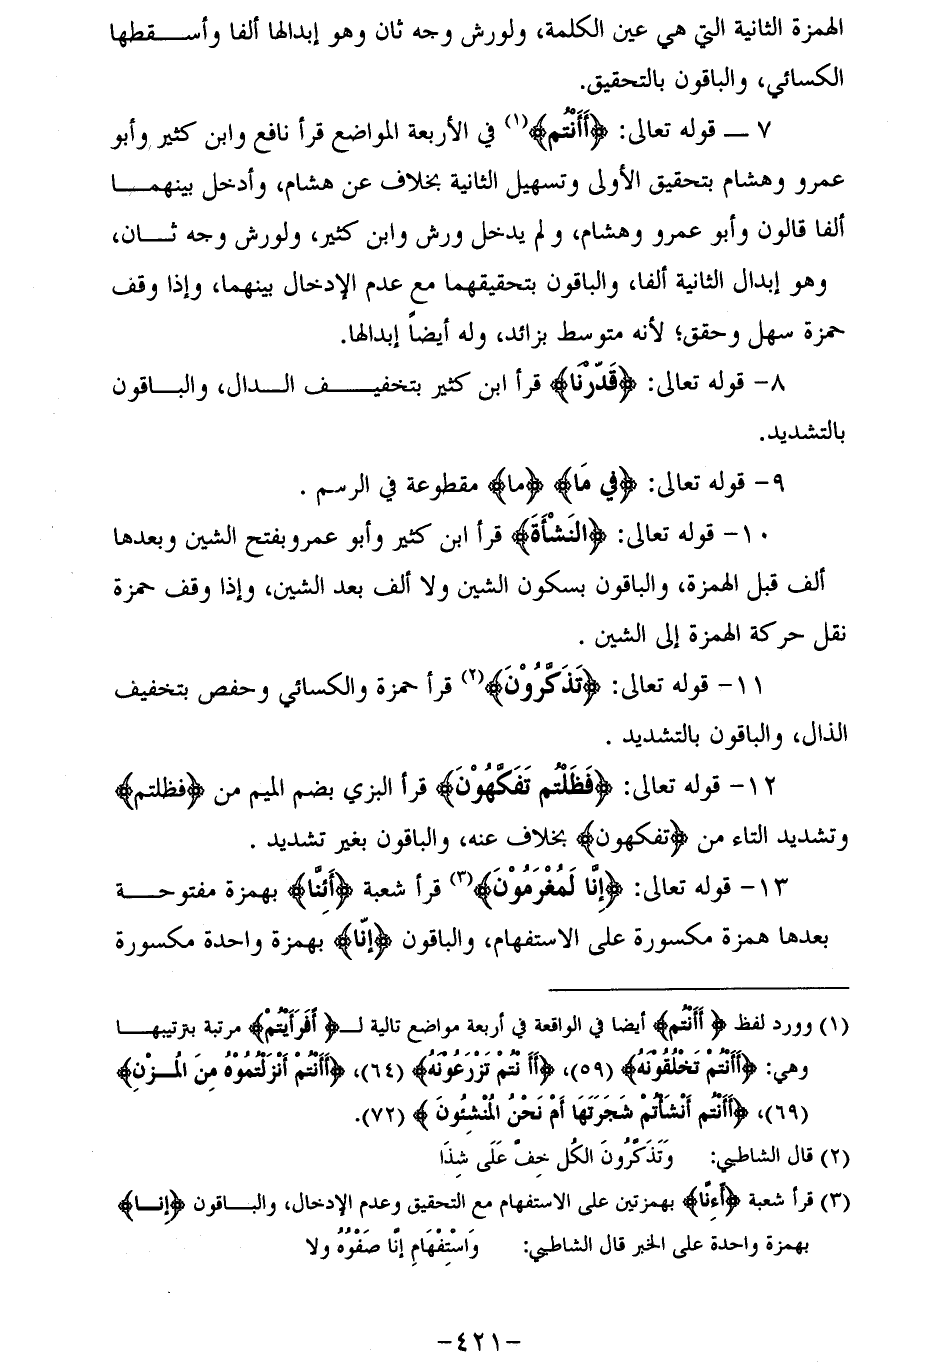 الهمزة الثانية التي هي عين الكلمة، ولورش وجه ثان وهو إبدالها ألفا وأسـقطها
الكسائي، والباقون بالتحقيق.
٧ – قوله تعالى: ﴿أَأَنْتُم﴾(١) في الأربعة المواضع قرأ نافع وابن كثير وأبو
عمرو وهشام بتحقيق الأولى وتسهيل الثانية بخلاف عن هشام، وأدخل بينهمـا
ألفا قالون وأبو عمرو وهشام، ولم يدخل ورش وابن كثير، ولورش وجه ثـان،
وهو إبدال الثانية ألفا، والباقون بتحقيقهما مع عدم الإدخال بينهما، وإذا وقف
حمزة سهل وحقق؛ لأنه متوسط بزائد، وله أيضاً إبدالها.
٨- قوله تعالى: ﴿قَدَّرْنَا﴾ قرأ ابن كثير بتخفيـف الـدال، والبـاقون
بالتشديد.
٩- قوله تعالى: ﴿في مَا﴾ ﴿ما﴾ مقطوعة في الرسم .
١٠- قوله تعالى: ﴿النَشْأَةَ﴾ قرأ ابن كثير وأبو عمروبفتح الشين وبعدها
ألف قبل الهمزة، والباقون بسكون الشين ولا ألف بعد الشين، وإذا وقف حمزة
نقل حركة الهمزة إلى الشين .
١١- قوله تعالى: ﴿تَذَكَّرُوْنَ﴾(٢) قرأ حمزة والكسائي وحفص بتخفيف
الذال، والباقون بالتشديد .
١٢- قوله تعالى: ﴿فَظَلْتُم تَفَكَّهُوْنَ﴾ قرأ البزي بضم الميم من ﴿فظلتم﴾
وتشديد التاء من ﴿تفكهون﴾ بخلاف عنه، والباقون بغير تشديد .
١٣- قوله تعالى: ﴿إِنَّا لَمُغْرَمُوْنَ﴾(٣) قرأ شعبة ﴿أَئنَّا﴾ بهمزة مفتوحـة
بعدها همزة مكسورة على الاستفهام، والباقون ﴿إنّا﴾ بهمزة واحدة مكسورة
(١) وورد لفظ ﴿ أَأَنْتُم﴾ أيضا في الواقعة في أربعة مواضع تالية لـ﴿ أَفَرَأَيْتُمْ﴾ مرتبة بترتيبهـا
وهي: ﴿أَأَنْتُمْ تَخْلُقُوْنَهُ﴾ (٥٩)، ﴿أَأَ نْتُمْ تَزْرَعُوْنَهُ﴾ (٦٤)، ﴿أَأَنْتُمْ أَنْزَلْتُمُوْهُ مِنَ الْمُـزْنِ﴾
(٦٩)، ﴿أَأَنْتُم أَنْشَأْتُمْ شَجَرَتَهَا أَمْ نَحْنُ الْمُنْشِئُونَ ﴾ (٧٢).
(٢) قال الشاطبي: وَتَذَّكَّرُونَ الكُل خِفَّ عَلَى شِذَا
(٣) قرأ شعبة ﴿أَءِنَّا﴾ بهمزتين على الاستفهام مع التحقيق وعدم الإدخال، والبـاقون ﴿إنـا﴾
بهمزة واحدة على الخبر قال الشاطبي: وَاسْتِفْهَامِ إنَّا صَفْوُهُ ولا
-٤٢١-